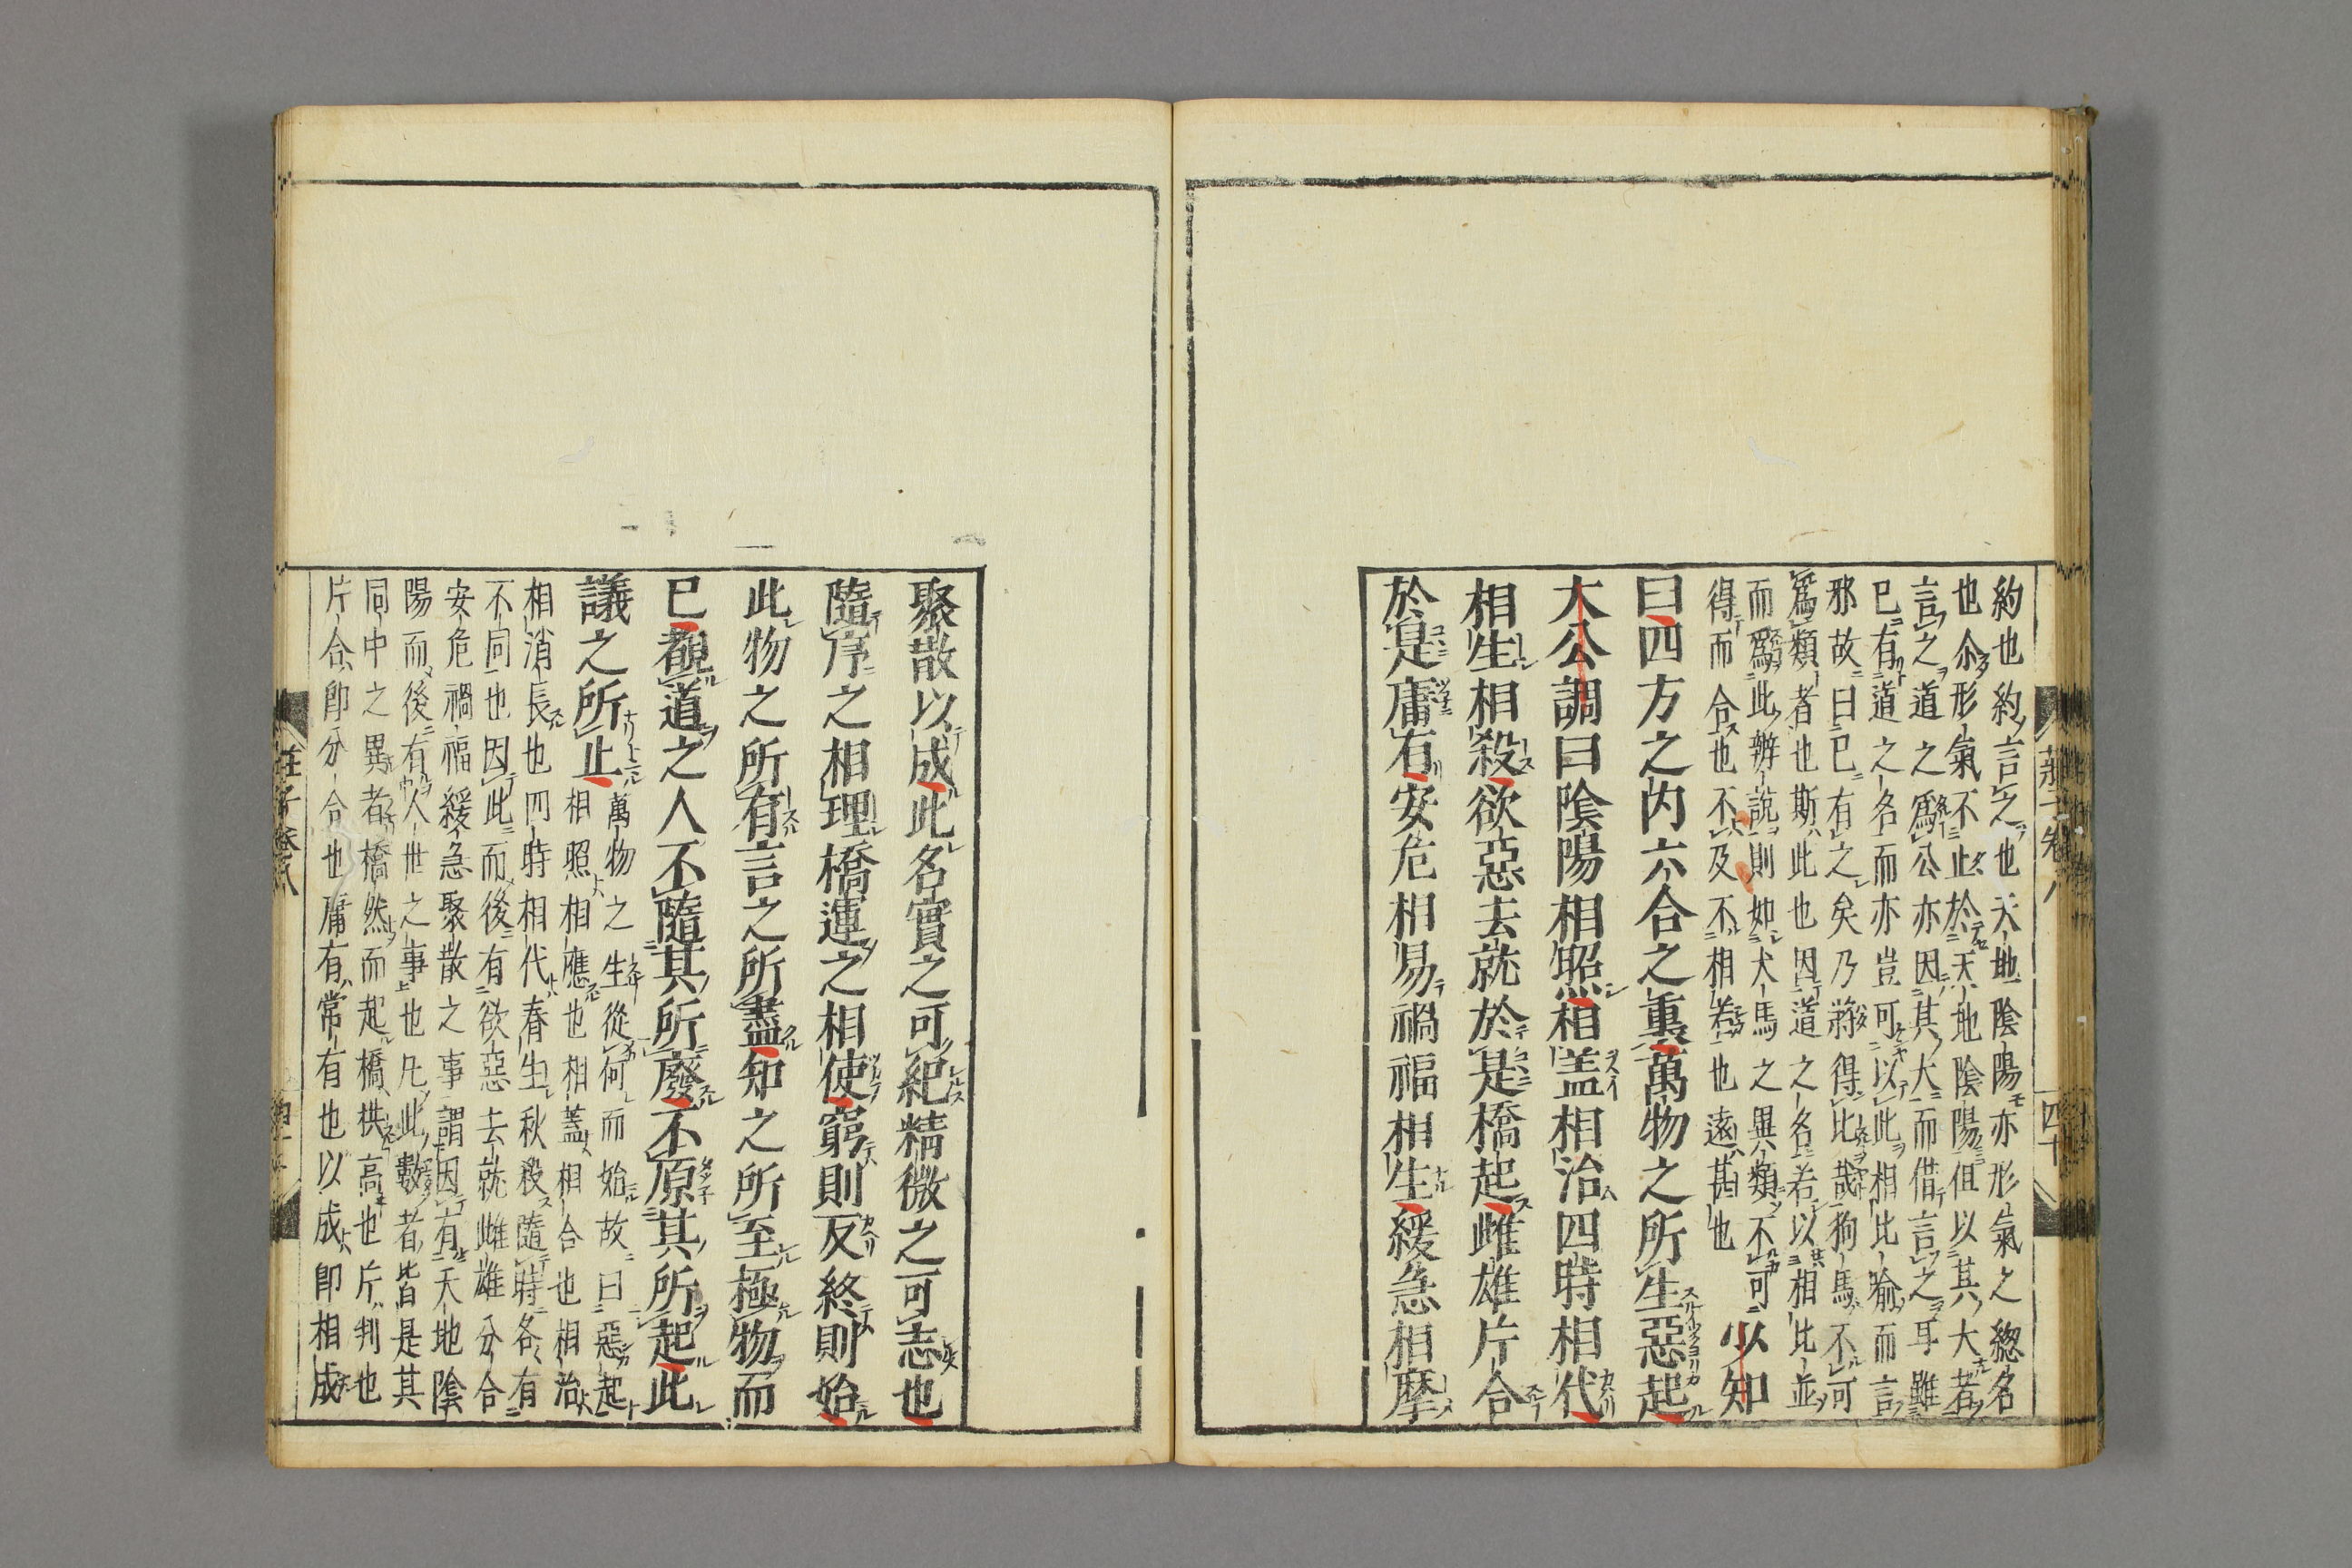 約也約言之也天地陰陽亦形氣之総名
也尒形氣不止於天地陰陽但以其大者
言之道之爲公亦因其大而借言之耳雖
已有道之名而亦豈可以此相比喻而言
邪故曰已有之矣乃將得比哉狗馬不可
爲類者也斯此也因道之名若以相比並
而爲此辨說則如犬馬之異類不可
得而合也不及不相若也遠甚也
少知
曰四方之內六合之裏萬物之所生惡起
大公調曰陰陽相照相蓋相治四時相代
相生相殺欲惡去就於是橋起雌雄片合
於是庸有安危相易禍福相生緩急相摩
聚散以成此名實之可紀精微之可志也
隨序之相理橋運之相使窮則反終則始
此物之所有言之所盡知之所至極物而
已覩道之人不隨其所廢不原其所起此
議之所止
萬物之生從何而始故曰惡起
相照相應也相蓋相合也相治
相消長也四時相代春生秋殺隨時各有
不同也因此而後有欲惡去就雌雄分合
安危禍福緩急聚散之事謂因有天地陰
陽而後有人世之事也凡此數者皆是其
同中之異者橋然而起橋拱高也片判也
片合即分合也庸有常有也以成即相成
莊子卷八
四十